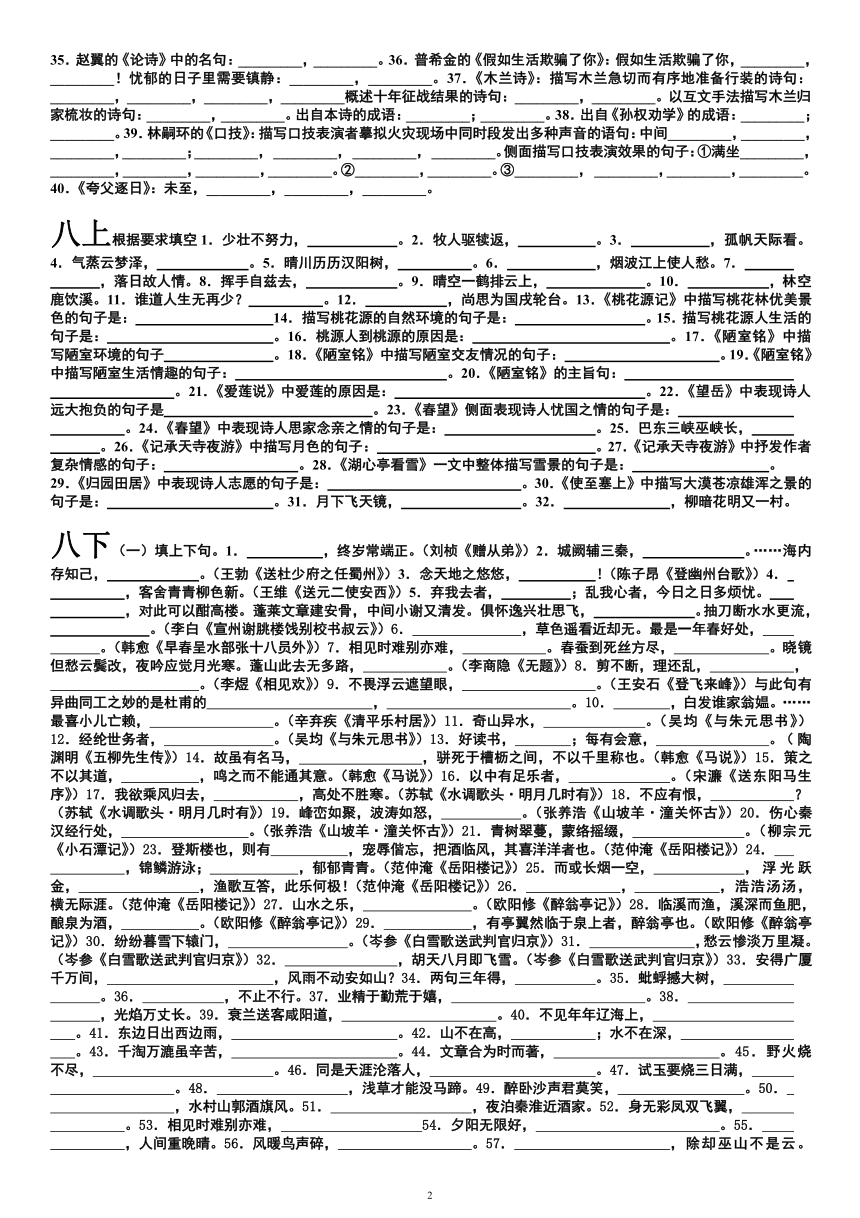 35．赵翼的《论诗》中的名句：_________，_________。36．普希金的《假如生活欺骗了你》：假如生活欺骗了你，_________，
_________！忧郁的日子里需要镇静：_________，_________。37．《木兰诗》：描写木兰急切而有序地准备行装的诗句：
_________，_________，_________，_________概述十年征战结果的诗句：_________，_________。以互文手法描写木兰归
家梳妆的诗句：_________，_________。出自本诗的成语：_________；_________。38．出自《孙权劝学》的成语：_________；
_________。39．林嗣环的《口技》：描写口技表演者摹拟火灾现场中同时段发出多种声音的语句：中间_________，_________，
_________，_________；_________，_________，_________，_________。侧面描写口技表演效果的句子：①满坐_________，
_________，_________，_________，_________。②_________，_________。③_________，_________，_________，_________。
40．《夸父逐日》：未至，_________，_________，_________。
八上根据要求填空 1．少壮不努力，_________。2．牧人驱犊返，_________。3．_________，孤帆天际看。
4．气蒸云梦泽，_________。5．晴川历历汉阳树，_________。6．_________，烟波江上使人愁。7．______
______，落日故人情。8．挥手自兹去，_________。9．晴空一鹤排云上，_________。10．_________，林空
鹿饮溪。11．谁道人生无再少？_________。12．_________，尚思为国戍轮台。13．《桃花源记》中描写桃花林优美景
色的句子是：_________14．描写桃花源的自然环境的句子是：_________。15．描写桃花源人生活的
句子是：_________。16．桃源人到桃源的原因是：_________。17．《陋室铭》中描
写陋室环境的句子_________。18．《陋室铭》中描写陋室交友情况的句子：_________。19．《陋室铭》
中描写陋室生活情趣的句子：_________。20．《陋室铭》的主旨句：_________
_________。21．《爱莲说》中爱莲的原因是：_________。22．《望岳》中表现诗人
远大抱负的句子是_________。23．《春望》侧面表现诗人忧国之情的句子是：_________
_________。24．《春望》中表现诗人思家念亲之情的句子是：_________。25．巴东三峡巫峡长，_____
______。26．《记承天寺夜游》中描写月色的句子：_________。27．《记承天寺夜游》中抒发作者
复杂情感的句子：_________。28．《湖心亭看雪》一文中整体描写雪景的句子是：_________。
29．《归园田居》中表现诗人志愿的句子是：_________。30．《使至塞上》中描写大漠苍凉雄浑之景的
句子是：_________。31．月下飞天镜，_________。32．_________，柳暗花明又一村。
八下（一）填上下句。1．_________，终岁常端正。（刘桢《赠从弟》）2．城阙辅三秦，_________。……海内
存知己，_________。（王勃《送杜少府之任蜀州》）3．念天地之悠悠，_________！（陈子昂《登幽州台歌》）4．_
_________，客舍青青柳色新。（王维《送元二使安西》）5．弃我去者，_________；乱我心者，今日之日多烦忧。___
_________，对此可以酣高楼。蓬莱文章建安骨，中间小谢又清发。俱怀逸兴壮思飞，_________。抽刀断水水更流，
_________。（李白《宣州谢朓楼饯别校书叔云》）6．_________，草色遥看近却无。最是一年春好处，____
______。（韩愈《早春呈水部张十八员外》）7．相见时难别亦难，_________。春蚕到死丝方尽，_________。晓镜
但愁云鬓改，夜吟应觉月光寒。蓬山此去无多路，_________。（李商隐《无题》）8．剪不断，理还乱，_________，
_________。（李煜《相见欢》）9．不畏浮云遮望眼，_________。（王安石《登飞来峰》）与此句有
异曲同工之妙的是杜甫的_________，_________。10．_______，白发谁家翁媪。……
最喜小儿亡赖，_________。（辛弃疾《清平乐村居》）11．奇山异水，_________。（吴均《与朱元思书》）
12．经纶世务者，_________。（吴均《与朱元思书》）13．好读书，_______；每有会意，_________。（陶
渊明《五柳先生传》）14．故虽有名马，_________，骈死于槽枥之间，不以千里称也。（韩愈《马说》）15．策之
不以其道，_________，鸣之而不能通其意。（韩愈《马说》）16．以中有足乐者，_________。（宋濂《送东阳马生
序》）17．我欲乘风归去，_________，高处不胜寒。（苏轼《水调歌头·明月几时有》）18．不应有恨，_________？
（苏轼《水调歌头·明月几时有》）19．峰峦如聚，波涛如怒，_________。（张养浩《山坡羊·潼关怀古》）20．伤心秦
汉经行处，_________。（张养浩《山坡羊·潼关怀古》）21．青树翠蔓，蒙络摇缀，_________。（柳宗元
《小石潭记》）23．登斯楼也，则有_________，宠辱偕忘，把酒临风，其喜洋洋者也。（范仲淹《岳阳楼记》）24．___
_________，锦鳞游泳；_________，郁郁青青。（范仲淹《岳阳楼记》）25．而或长烟一空，_________，浮光跃
金，_________，渔歌互答，此乐何极！（范仲淹《岳阳楼记》）26．_________，_________，浩浩汤汤，
横无际涯。（范仲淹《岳阳楼记》）27．山水之乐，_________。（欧阳修《醉翁亭记》）28．临溪而渔，溪深而鱼肥，
酿泉为酒，_________。（欧阳修《醉翁亭记》）29．_________，有亭翼然临于泉上者，醉翁亭也。（欧阳修《醉翁亭
记》）30．纷纷暮雪下辕门，_________。（岑参《白雪歌送武判官归京》）31．_________，愁云惨淡万里凝。
（岑参《白雪歌送武判官归京》）32．_________，胡天八月即飞雪。（岑参《白雪歌送武判官归京》）33．安得广厦
千万间，_________，风雨不动安如山？34．两句三年得，_________。35．蚍蜉撼大树，_________
______。36．_________，不止不行。37．业精于勤荒于嬉，_________。38．_________
______，光焰万丈长。39．衰兰送客咸阳道，_________。40．不见年年辽海上，_________
___。41．东边日出西边雨，_________。42．山不在高，_________；水不在深，_________
___。43．千淘万漉虽辛苦，_________。44．文章合为时而著，_________。45．野火烧
不尽，_________。46．同是天涯沦落人，_________。47．试玉要烧三日满，_____
_________。48．_________，浅草才能没马蹄。49．醉卧沙场君莫笑，_________。50．_
_________，水村山郭酒旗风。51．_________，夜泊秦淮近酒家。52．身无彩凤双飞翼，______
_________。53．相见时难别亦难，_________54．夕阳无限好，_________。55．____
_________，人间重晚晴。56．风暖鸟声碎，_________。57．_________，除却巫山不是云。
2